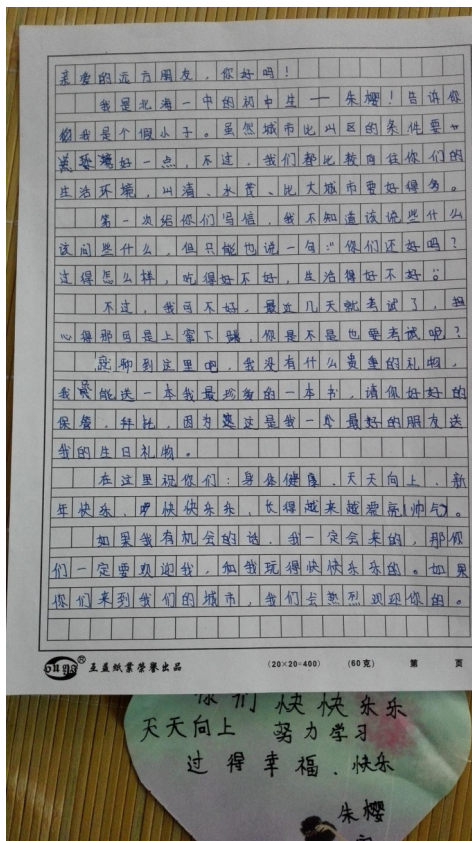 亲爱的远方朋友，你好吗！
我是北海一中的初中生——朱樱！告诉你
我是个假小子。虽然城市比山区的条件要
好一点，不过，我们都比较向往你们的
生活环境，山清、水茂、比大城市要好得多。
第一次给你们写信，我不知道该说些什么
该问些什么，但只能也说一句："你们还好吗？
过得怎么样，吃得好不好，生活得好不好。"
不过，我可不好，最近几天就考试了，担
心得那可是上窜下跳，你是不是也要考试呢？
聊到这里吧，我没有什么贵重的礼物，
我只能送一本我最珍爱的一本书，请你好好的
保管，拜托，因为这是我一个最好的朋友送
我的生日礼物。
在这里祝你们：身体健康，天天向上，新
年快乐，快快乐乐，长得越来越漂亮(帅气)。
如果我有机会的话，我一定会来的，那你
们一定要欢迎我，和我玩得快快乐乐的。如果
你们来到我们的城市，我们会热烈欢迎你的。
互益纸业荣誉出品 (20×20=400) (60克) 第 页
你们快快乐乐
天天向上 努力学习
过得幸福、快乐
朱樱